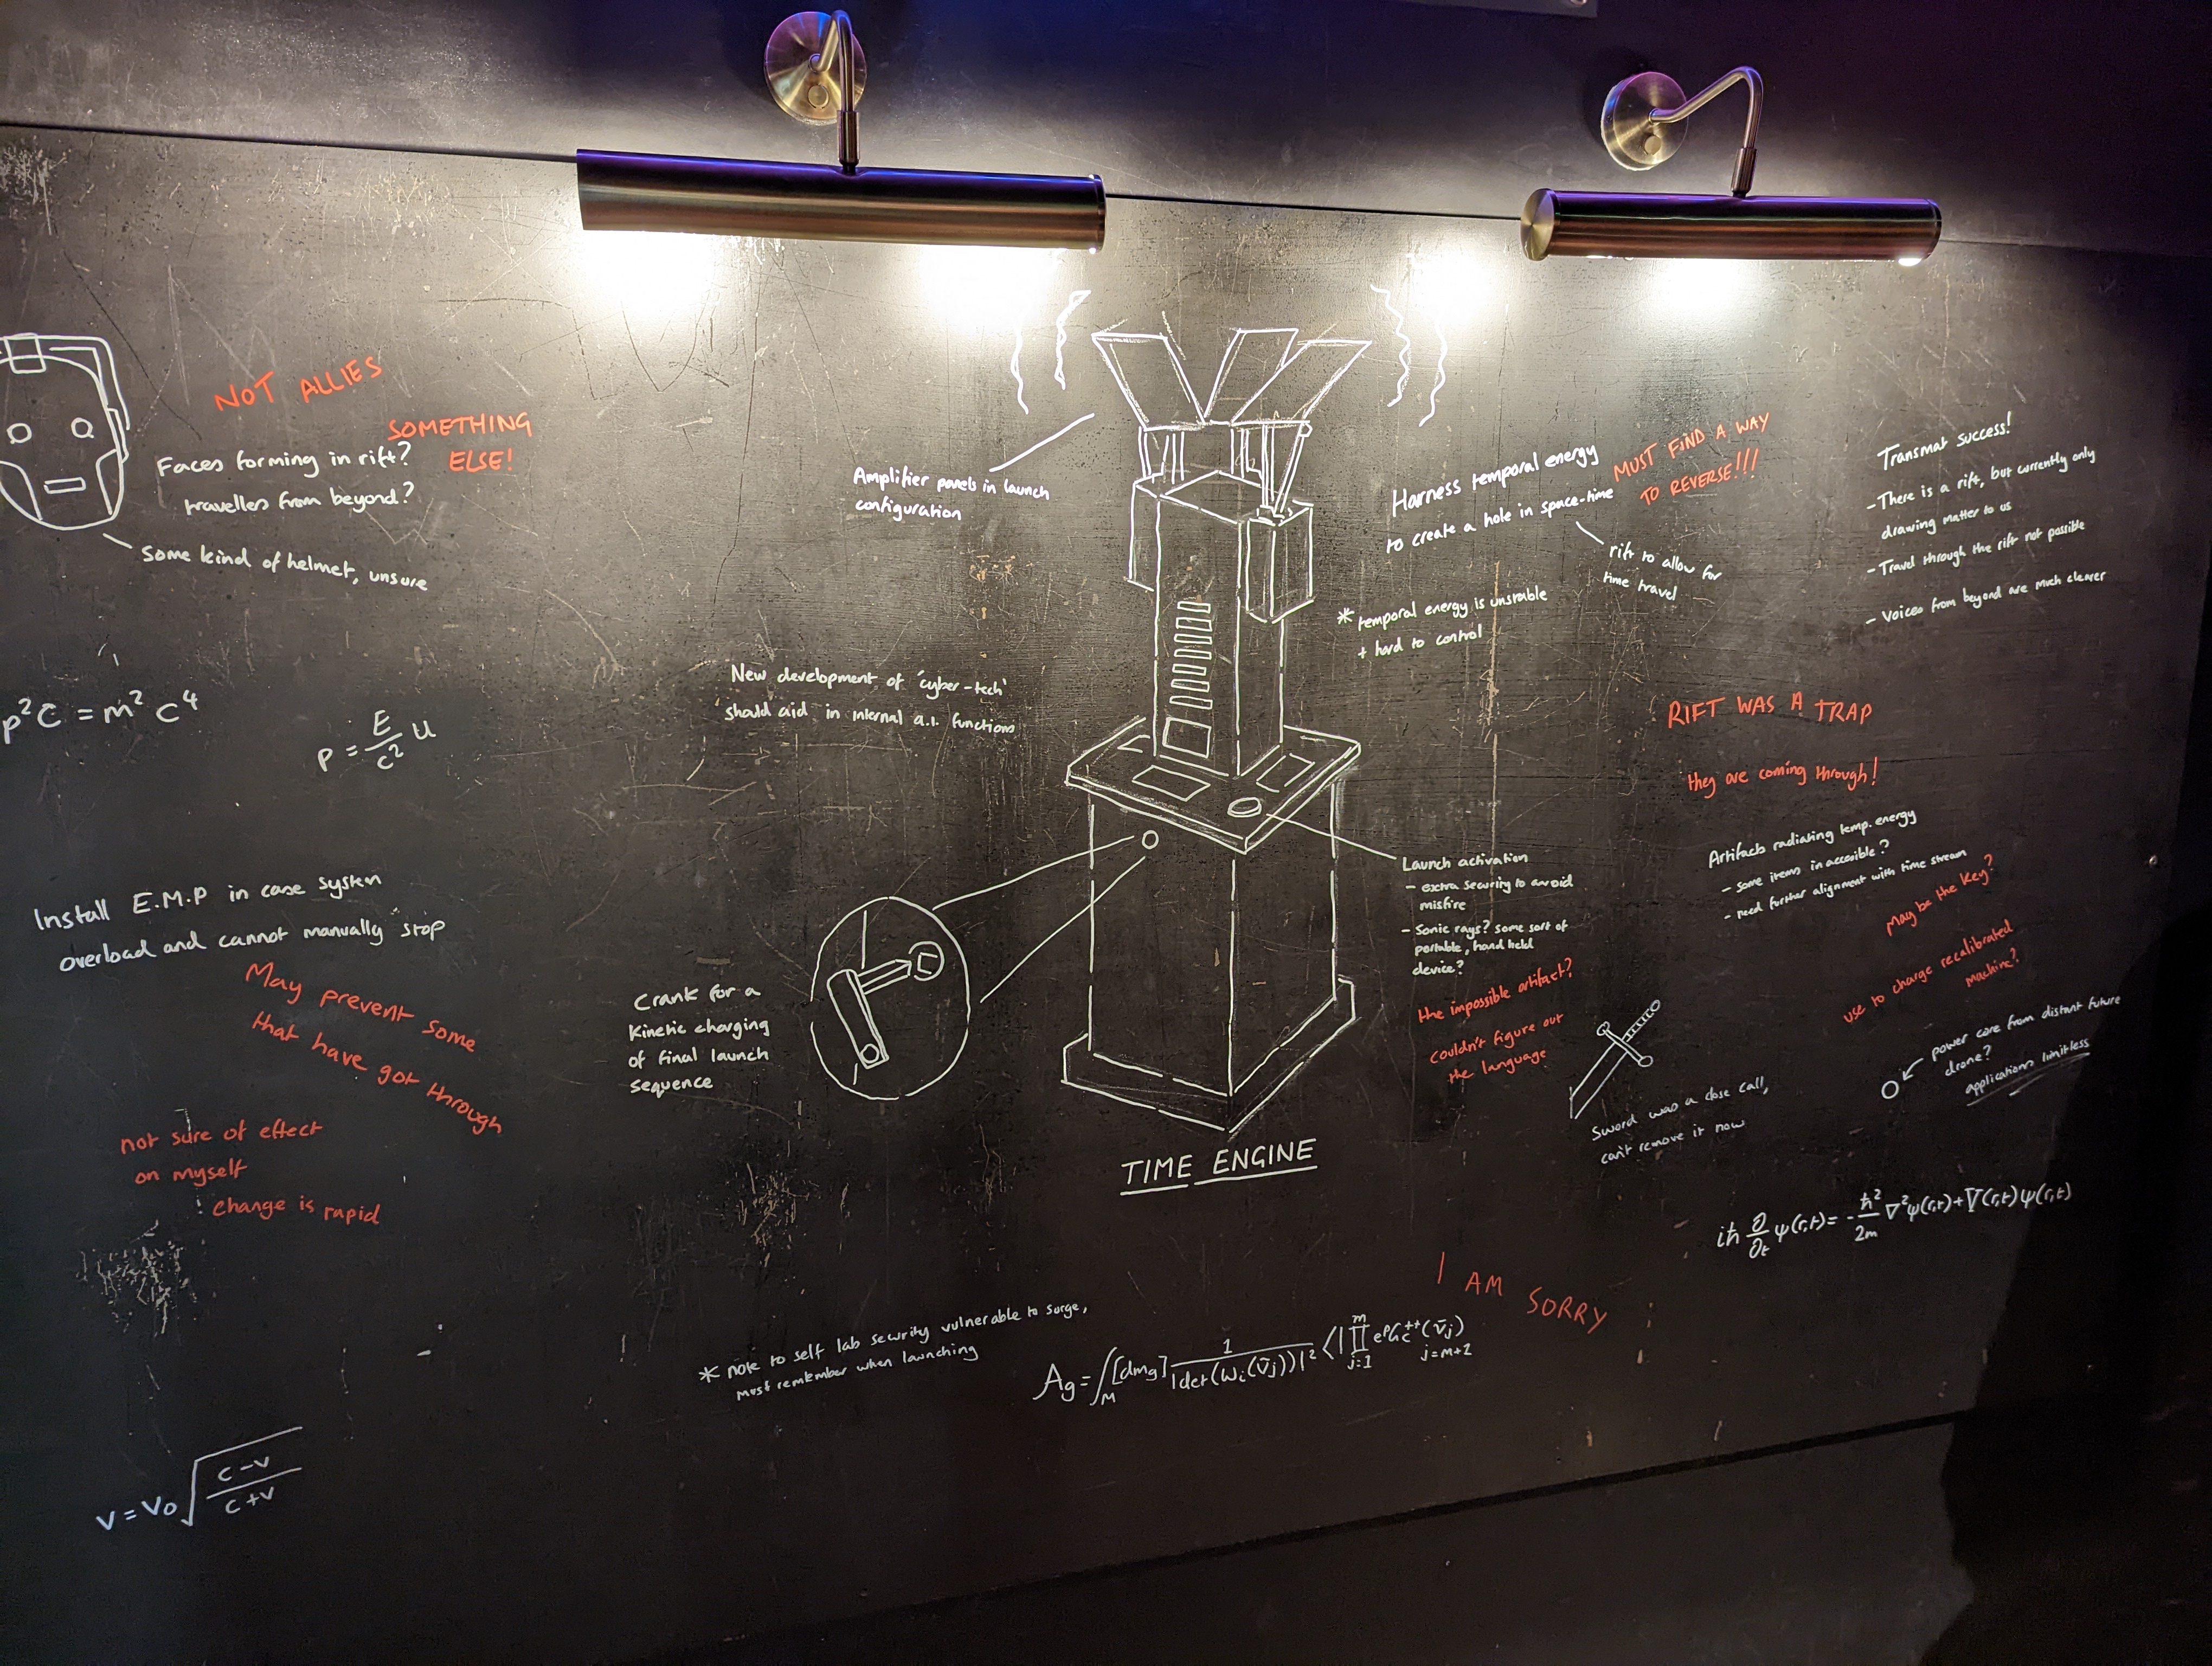 NOT ALLIES
SOMETHING
ELSE!
Faces forming in rift?
travellers from beyond?
Some kind of helmet, unsure
p²c = m² c⁴
p = E/c² u
Install E.M.P in case system
overload and cannot manually stop
May prevent some
that have got through
not sure of effect
on myself
change is rapid
v = v₀ √((c-v)/(c+v))
Amplifier panels in launch
configuration
New development of 'cyber-tech'
should aid in internal a.i. functions
Crank for a
kinetic charging
of final launch
sequence
TIME ENGINE
* note to self lab security vulnerable to surge,
must remember when launching
Ag = ∫M [dmg] 1/|det(wi(v̄j))|² ⟨|∏ j=1 m
j=m+2
Harness temporal energy
to create a hole in space-time
MUST FIND A WAY
TO REVERSE!!!
rift to allow for
time travel
* temporal energy is unstable
+ hard to control
Transmat success!
- There is a rift, but currently only
drawing matter to us
- Travel through the rift not possible
- Voices from beyond are much clearer
RIFT WAS A TRAP
they are coming through!
Launch activation
- extra security to avoid
misfire
- Sonic rays? some sort of
portable, hand held
device?
the impossible artifact?
couldn't figure out
the language
Artifacts radiating temp. energy
- some items in accesible?
- need further alignment with time stream
May be the key?
use to charge recalibrated
machine?
power core from distant future
drone?
applications limitless
Sword was a close call,
can't remove it now
iħ ∂/∂t ψ(r,t) = -ħ²/2m ∇²ψ(r,t) + V(r,t)ψ(r,t)
I AM SORRY